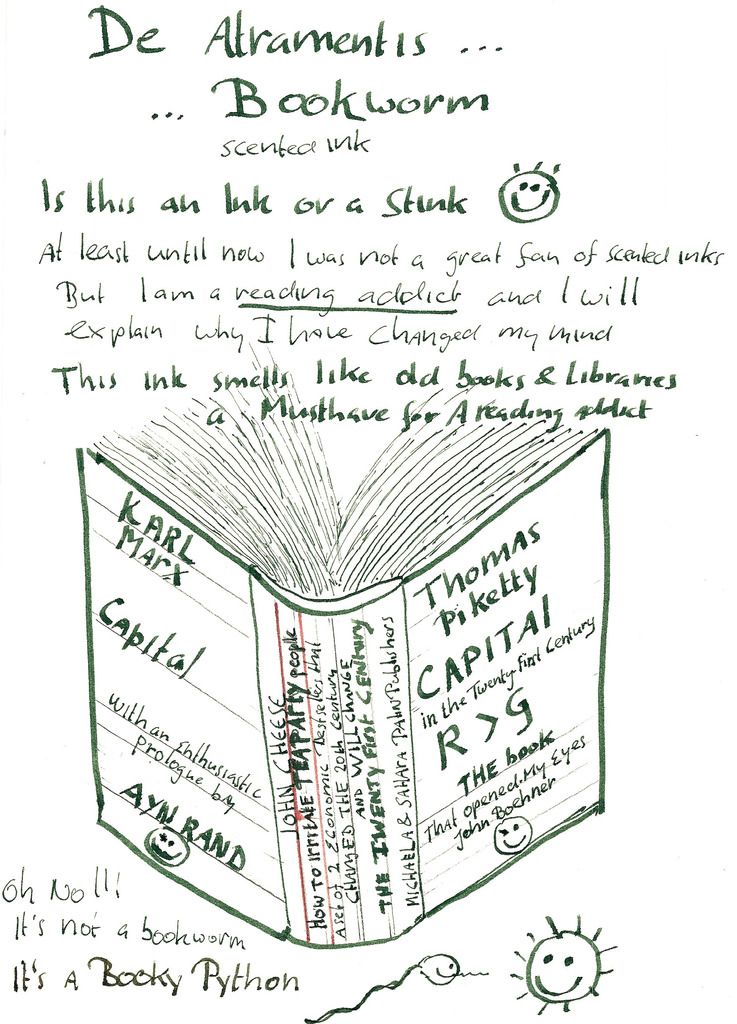 De Atramentis ...
... Bookworm
scented ink
Is this an Ink or a Stink
At least until now I was not a great fan of scented inks
But I am a reading addict and I will
explain why I have changed my mind
This ink smells like old books & Libraries
a Musthave for A reading addict
KARL
MARX
Capital
with an Enthusiastic
prologue by
AYN RAND
JOHN CHEESE
HOW TO IRRITATE TEAPARTY people
A set of 2 Economic Bestsellers that
CHANGED THE 20th Century
AND WILL CHANGE
THE TWENTY FIRST CENTURY
MICHAELA & SAHARA PAHN Publishers
Thomas
Piketty
CAPITAl
in the Twenty First Century
R > G
THE book
That opened My Eyes
John Boehner
Oh No!!!
It's not a bookworm
It's A Booky Python